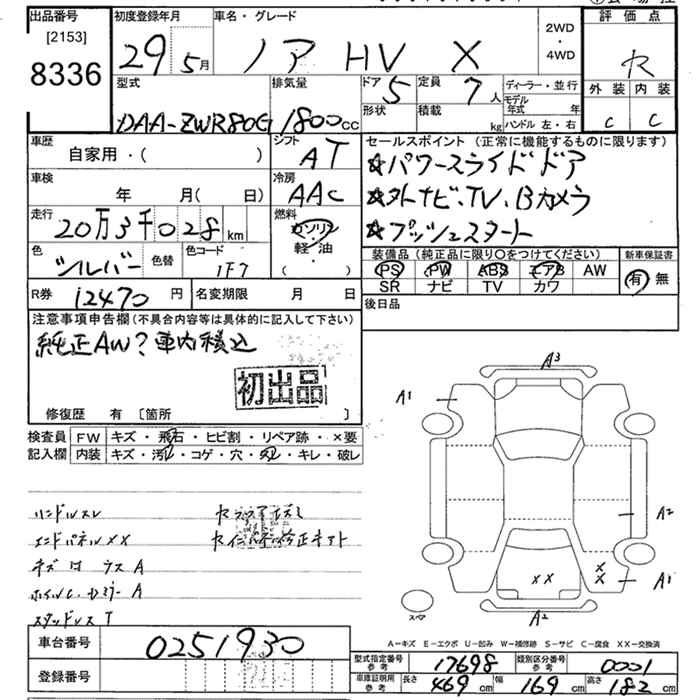 出品番号 初度登録年月 車名・グレード 評価点
[2153] 2WD
8336 29 5月 ノア HV X ・
4WD
型式 排気量 ドア 5 定員 7人 ディーラー・並行 外装 内装
形状 積載 kg モデル年式 年
DAA-ZWR80G 1800cc ハンドル 左・右 C C
車歴 シフト セールスポイント (正常に機能するものに限ります)
自家用・( ) AT ☆パワースライドドア
車検 冷房 ☆外ナビ、TV、Bカメラ
年 月( 日) AAC ☆プッシュスタート
走行 20万3千028km 燃料 ガソリン
軽・油
( )
色 シルバー 色替 色コード 1F7
装備品 (純正品に限り○をつけてください) 新車保証書
PS PW ABS エアB AW 有 無
SR ナビ TV カワ
R券 12470円 名変期限 月 日 後日品
注意事項申告欄 (不具合内容等は具体的に記入して下さい)
純正AW?車内積込
初出品
修復歴 有 〔箇所 〕
検査員 FW キズ・飛石・ヒビ割・リペア跡・×要
記入欄 内装 キズ・汚レ・コゲ・穴・スレ・キレ・破レ
ハンドルスレ
エンドパネルXX
A
A
スタッドレス T
車台番号 0251930
登録番号
A3
A1
A2
XX
X
X
A1
A2
スペア
A-キズ E-エクボ U-凹み W-補修跡 S-サビ C-腐食 XX-交換済
型式指定番号 参考 17698 類別区分番号 参考 0001
車庫証明用 参考 長さ 469cm 幅 169cm 高さ 182cm